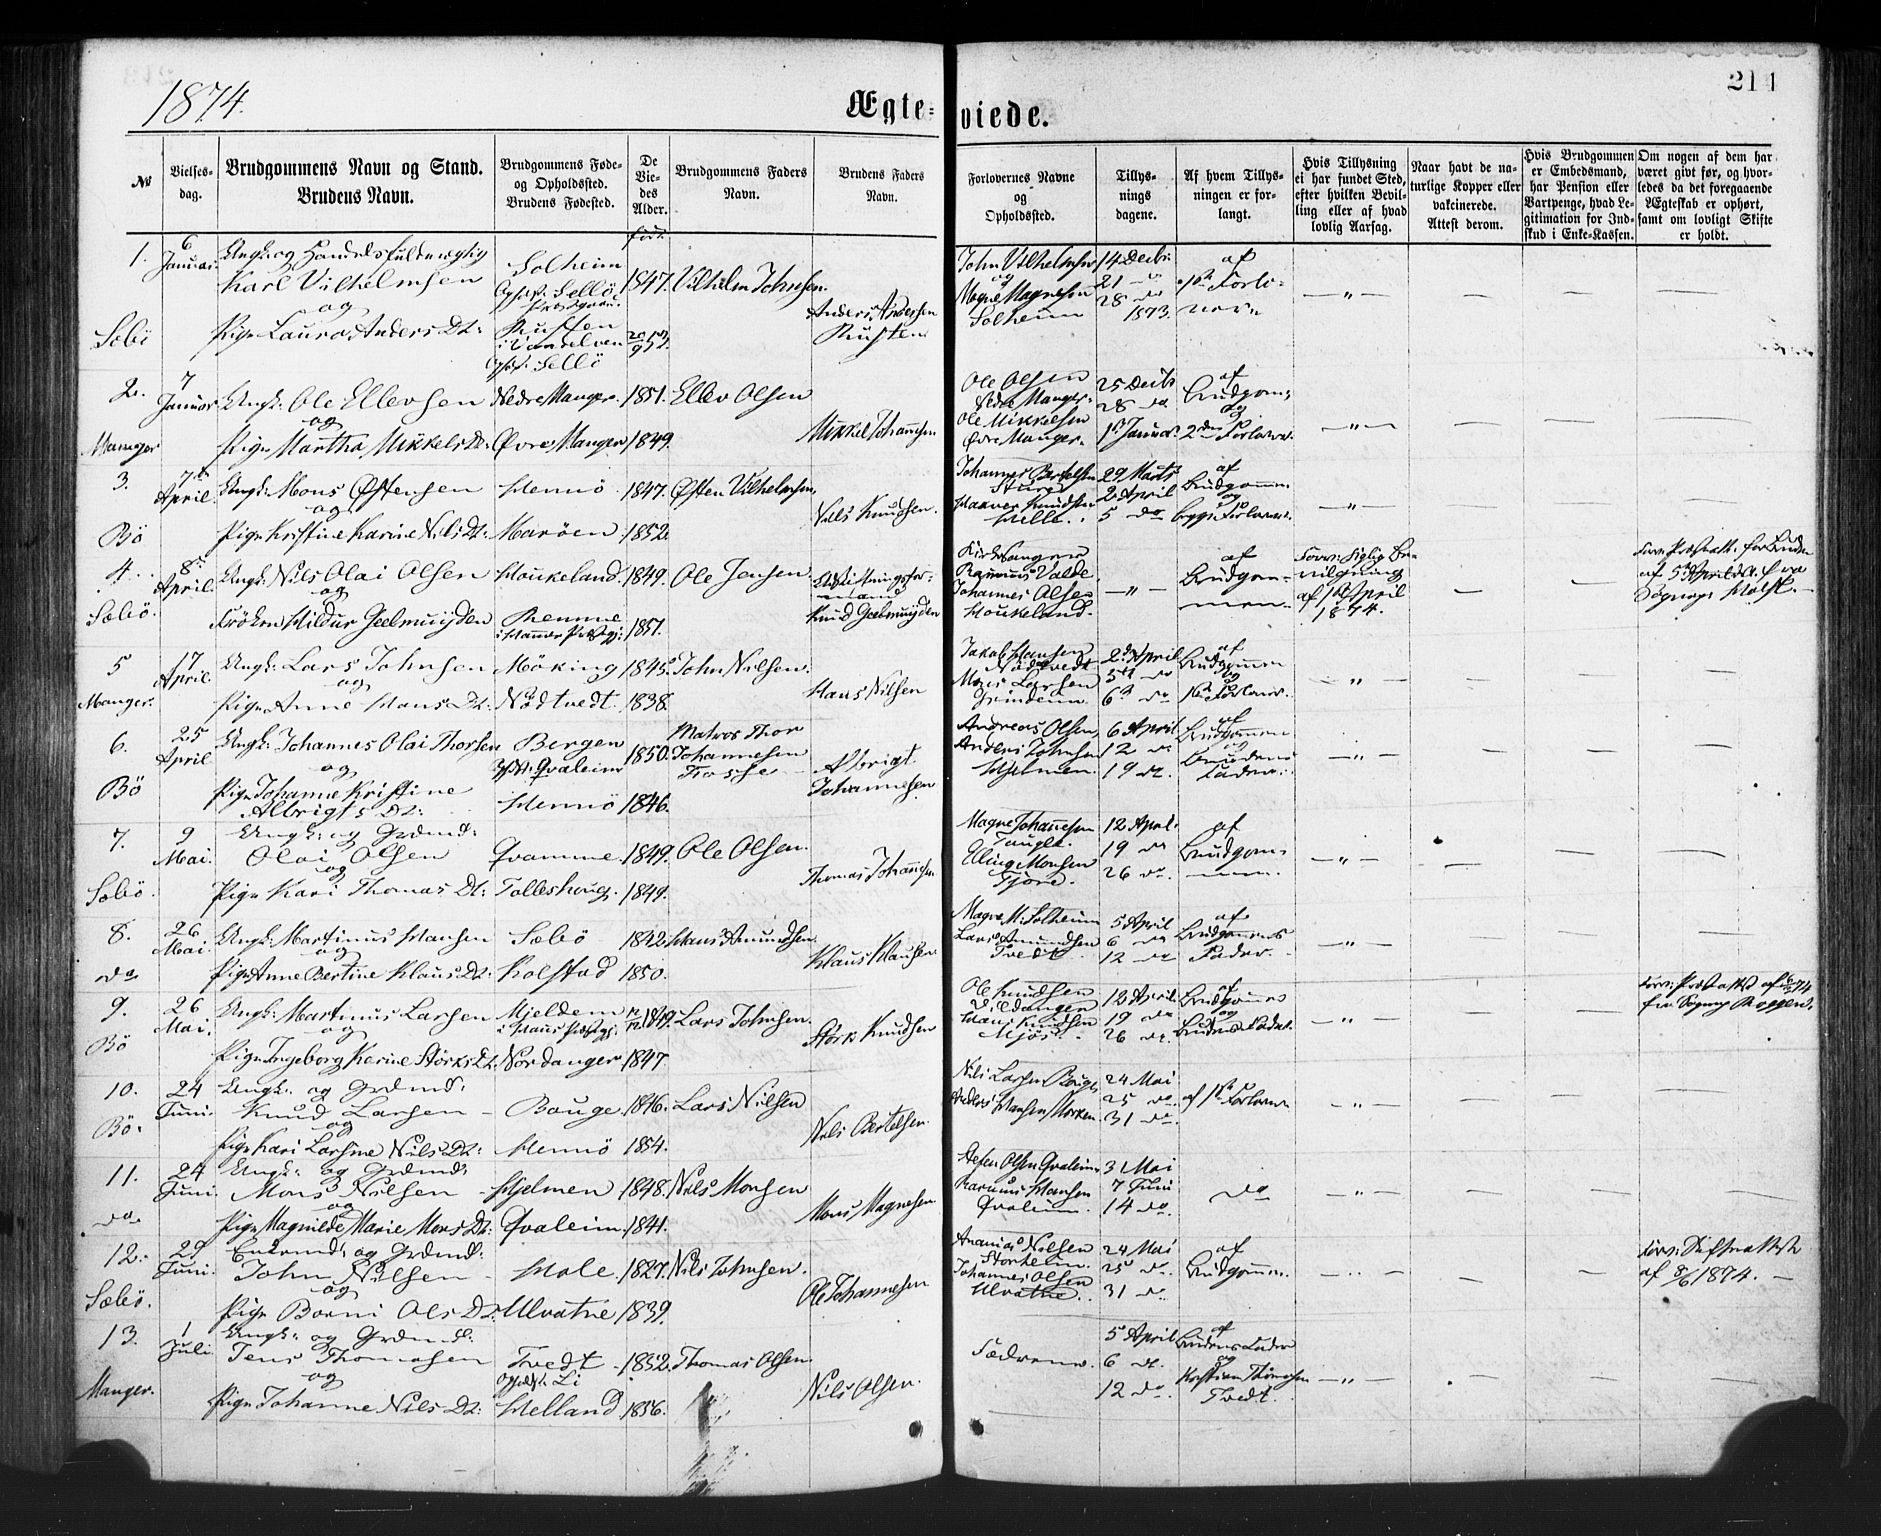 1874.
Ægteviede.
214
№
Vielsesdag.
Brudgommens Navn og Stand.
Brudens Navn.
Brudgommens Føde- og Opholdssted.
Brudens Fødested.
De Viedes Alder.
Brudgommens Faders Navn.
Brudens Faders Navn.
Forlovernes Navne og Opholdssted.
Tillysningsdagene.
Af hvem Tillysningen er forlangt.
Hvis Tillysning ei har fundet Sted, efter hvilken Bevilling eller af hvad lovlig Aarsag.
Naar havt de naturlige Kopper eller vakcinerede. Attest derom.
Hvis Brudgommen er Embedsmand, har Pension eller Vartpenge, hvad Legitimation for Indskud i Enke-Kassen.
Om nogen af dem har været givt før, og hvorledes da det foregaaende Ægteskab er ophørt, samt om lovligt Skifte er holdt.
født
1. 6 Januar. Ungk: og Handelsfuldmægtig
Karl Vilhelmsen Solheim 1847. Vilhelm Johnsen.
og
Sæbö Pige Laura Anders Dt: Rusten Anders Andersen Rusten
Opholdst. Sellö
John Vilhelmsen 14 Decbr: af
og 21 do 1ste Forlo-
Magne Magnesen 28 do vere
Solheim 1873.
2. 7 Januar Ungk: Ole Ellevsen Nedre Manger 1851. Ellev Olsen
og
Manger Pige Martha Mikkels Dt: Øvre Manger 1849. Mikkel Johannesen
Ole Olsen 25 Decbr af
Nedre Manger 28 do Brudgom:
Ole Mikkelsen og
Øvre Manger 1ste Januar 2den Forlover.
3. 7de April. Ungk: Mons Østensen Hennö 1847. Østen Vilhelmsen
og
Bö Pige Kristine Karine Nils Dt: Maröen 1852. Nils Knudsen.
Johannes Bertelsen 29 Marts af
2 April Brudgommen
Knudsen og
Helle. 5 do begge Forlovere.
4. 8de April. Ungk: Nils Olai Olsen Houkeland. 1849. Ole Jensen.
og
Sæbö. Frøken Hildur Geelmuijden 1851. Knud Geelmuijden
Kirkesanger af
Rasmus Valde Brudgom-
Johannes Olsen men
Houkeland.
Bevilgning
af 1ste April
1874.
5 17 April Ungk: Lars Johnsen Möking 1845. John Nilsen.
og
Manger. Pige Anne Hans Dt: Nödtvedt 1838. Hans Nilsen
Jakob Hansen 2den April af
Nödtvedt 5te do Brudgommen
Mons Larsen og
Grindem 6te do 1ste Forlover.
6. 25 April Ungk: Johannes Olai Thorsen Bergen 1850. Matros Thor
og Opholdst. Qvaleim Johannesen
Fosse
Bö Pige Johanne Kristine
Albrigts Dt: Hennö 1846. Albrigt Johannesen
Andreas Olsen 6 April af
Brudgommen
Anders Johnsen 12 do og
Hjelmen. 19 do Brudens Fader.
7. 9 Mai. Ungk: og Grdmd:
Olai Olsen Qvamme. 1849. Ole Olsen.
og
Sæbö. Pige Kari Thomas Dt: Tolleshoug. 1849. Thomas Johannesen
Magne Johannesen 12 April. af
19 do Brudgom-
Elling Monsen men.
Fjöre. 26 do.
8. 26 Mai. Ungk: Martinus Hansen Sæbö 1842. Hans Amundsen
og
do Pige Anne Bertine Klaus Dt: Kolstad 1850. Klaus Klausen
Magne M: Solheim 5 April af
Lars Amundsen 6 do Brudgommens
Tvedt 12 do Fader.
9. 26 Mai. Ungk: Martinus Larsen Mjeldem 1849. Lars Johnsen.
og i Haus Præstgj:
Bö Pige Ingeborg Karine Störks Dt: Nordanger 1847. Störk Knudsen
Ole Knudsen 12 April af
Vildanger Brudgommens
Hans Knudsen 19 do og
Mjös. 26 do. Brudens Fader.
10. 24 Juni. Ungk: og Grdmd:
Knud Larsen Bouge 1846. Lars Nilsen
og
Bö. Pige Kari Larsine Nils Dt: Hennö 1854. Nils Bertelsen.
Nils Larsen Bouge 24 Mai
Anders Hansen Morken 25 do af 1ste Forlover
31 do.
11. 24 Juni. Ungk: og Grdmd:
Mons Nilsen Hjelmen 1848. Nils Monsen
og
do Pige Magnilde Marie Mons Dt: Qvaleim. 1841. Mons Magnesen
Olsen Qvaleim 31 Mai
Rasmus Hansen 7 Juni do
Qvaleim. 14 do.
12. Juni. Enkemd: og Grdmd:
John Nilsen Hole. 1827. Nils Johnsen.
og
Sæbö. Pige Borni Ols Dt: Ulvatne 1839. Ole Johannesen
Ananias Nilsen 24 Mai af
Storheim 25 do. Brudgommen.
Johannes Olsen
Ulvatne. 31 do
Skifteattest
af 8/6 1874.
13. 1 Juli Ungk: og Grdmd:
Jens Thomasen Tvedt 1852. Thomas Olsen.
og Opholdst. Li
Manger. Pige Johanne Nils Dt: Helland 1856. Nils Olsen.
Fædrene. 5 April af
Brudens Fader
6 do. og
12 do Kristian Thomasen
Tvedt.